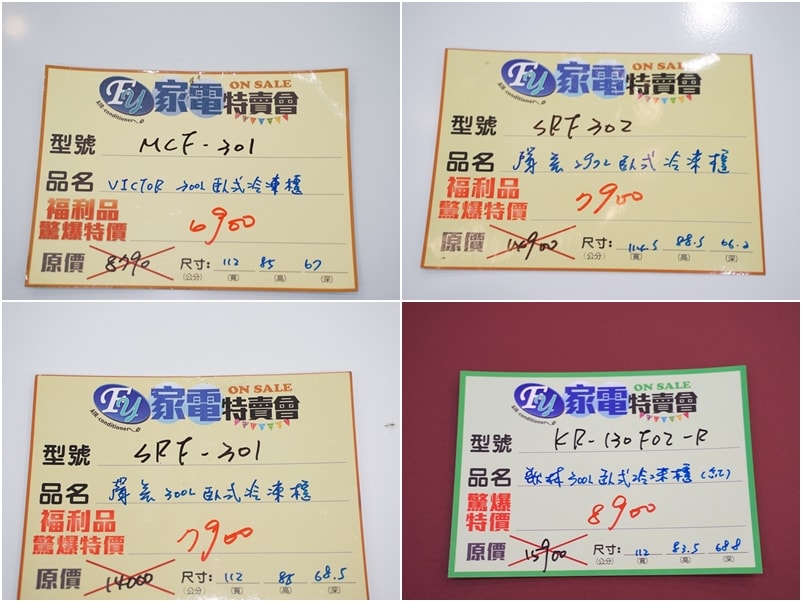 FY 家電特賣會 ON SALE
Air-conditioner
型號 MCF-301
品名 VICTOR 300L臥式冷凍櫃
福利品
驚爆特價 6900
原價 8790 尺寸: 112 85 67
(公分) (寬) (高) (深)
FY 家電特賣會 ON SALE
Air-conditioner
型號 SRF302
品名 292L臥式冷凍櫃
福利品
驚爆特價 7900
原價 14900 尺寸: 114.5 88.5 66.2
(公分) (寬) (高) (深)
FY 家電特賣會 ON SALE
Air-conditioner
型號 SRF-301
品名 300L臥式冷凍櫃
福利品
驚爆特價 7900
原價 14000 尺寸: 112 85 68.5
(公分) (寬) (高) (深)
FY 家電特賣會 ON SALE
Air-conditioner
型號 KR-130F02-R
品名 歌林300L臥式冷凍櫃(紅)
驚爆
特價 8900
原價 15900 尺寸: 112 83.5 68.8
(公分) (寬) (高) (深)